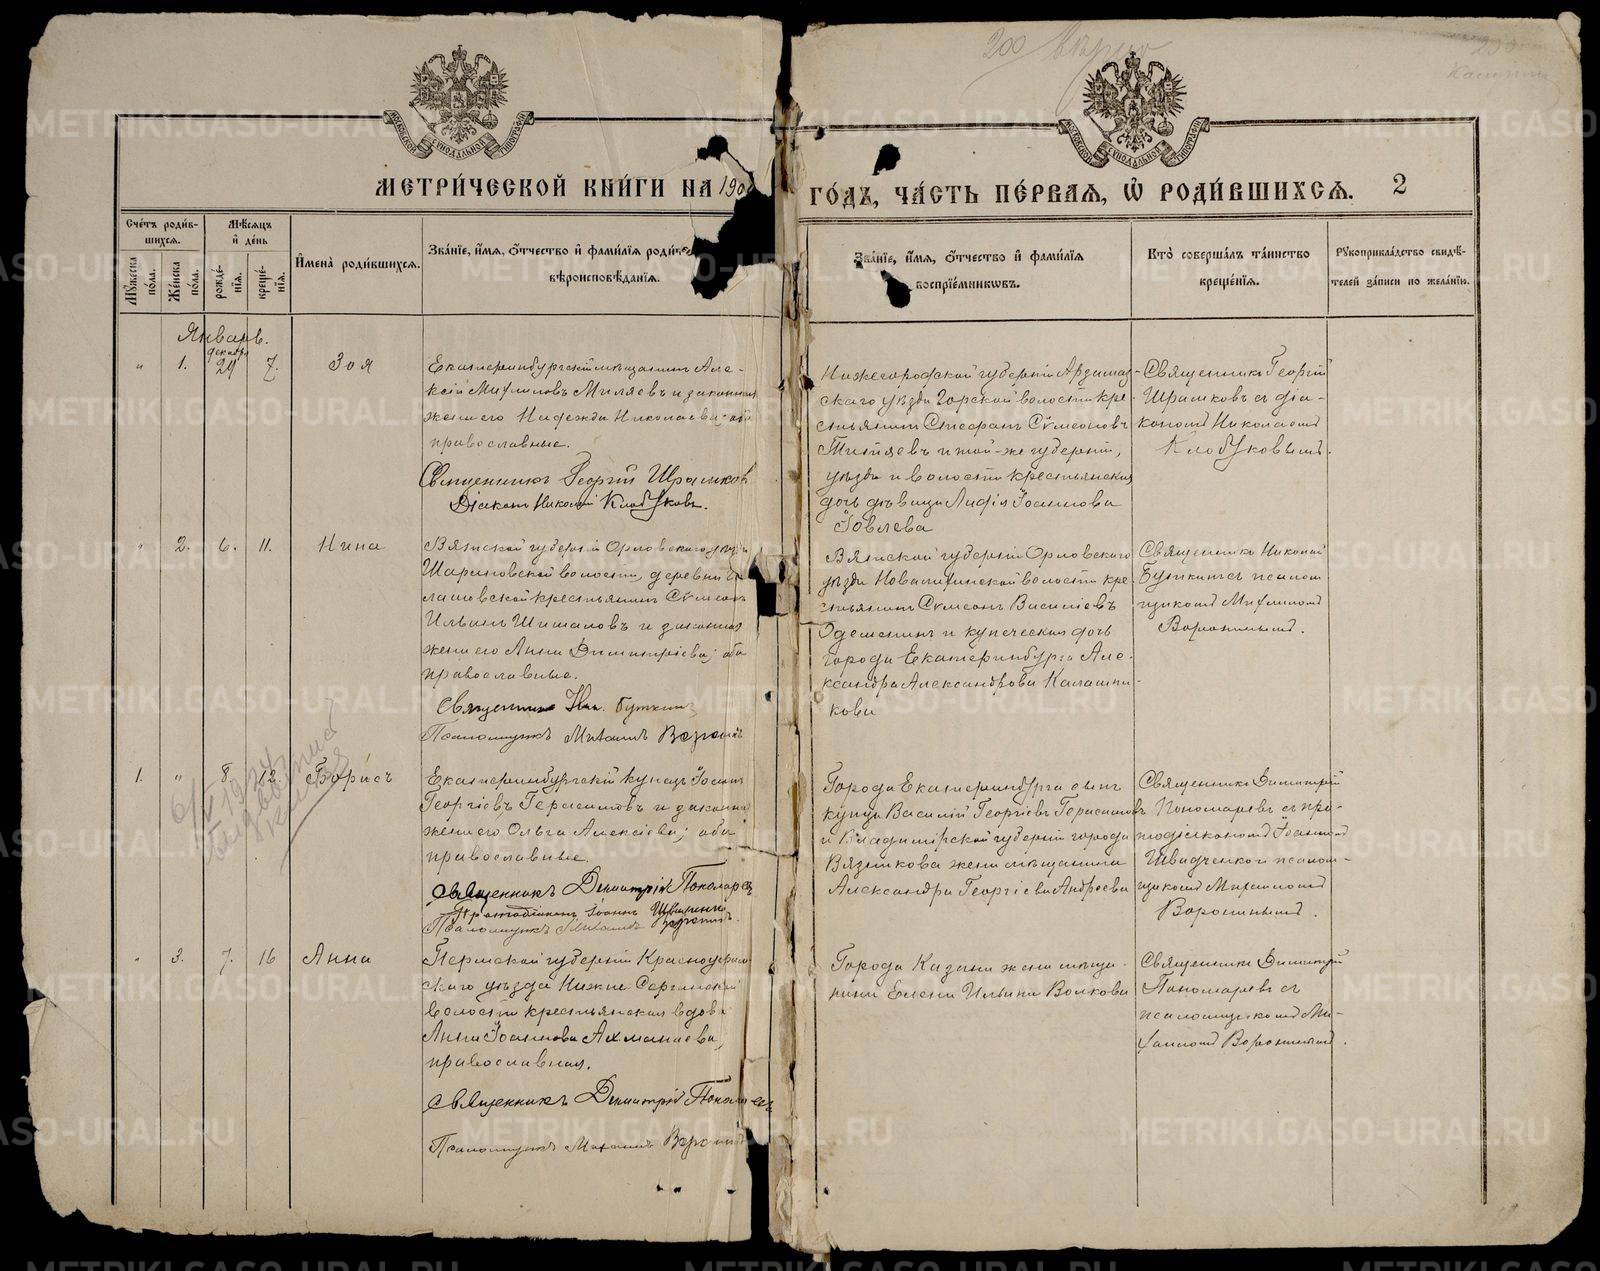 200
МОСКОВСКОЙ СѴНОДАЛЬНОЙ ТИПОГРАФІИ
МОСКОВСКОЙ СѴНОДАЛЬНОЙ ТИПОГРАФІИ
МЕТРИ́ЧЕСКОЙ КНИ́ГИ НА 190
ГО́ДЪ, ЧА́СТЬ ПЕ́РВАЯ, Ѡ РОДИ́ВШИХСЯ. 2
Сче́тъ роди́в-
шихся.
Мѣ́сяцъ
и҆ де́нь
Мꙋ́жеска по́ла.
Же́нска по́ла.
рожде́-нїя.
креще́-нїя.
И҆мена̀ роди́вшихся.
Зва́нїе, и҆́мя, ѻ҆́тчество и҆ фами́лїя роди́те
вѣроисповѣ́данїя.
Зва́нїе, и҆́мя, ѻ҆́тчество и҆ фами́лїя
воспрїе́мникѡвъ.
Кто̀ соверша́лъ та́инство
креще́нїя.
Рꙋкоприкла́дство свидѣ́-
телей за́писи по жела́нїю.
Январь.
" 1. декабр 29 7. Зоя
Екатеринбургскій мѣщанинъ Але-
ксій Михаиловъ Миляевъ и законная
жена его Надежда Николаева; оба
православные.
Священникъ Георгій Шрамков
Діаконъ Николай Клобуковъ.
Нижегородской губерніи Арзамас-
скаго уѣзда Горской волости кре-
стьянинъ Стефанъ Сѵмеоновъ
и той-же губерніи,
уѣзда и волости крестьянская
дочь дѣвица Лидія Іоаннова
Іовлева
Священникъ Георгій
Шрамковъ съ діа-
кономъ Николаемъ
Клобуковымъ.
" 2. 6. 11. Нина
Вятской губерніи Орловскаго уѣзда
волости, деревни
крестьянинъ Сѵмеонъ
Ильинъ Шишаловъ и законная
жена его Анна Димитріева; оба
православные.
Священникъ Ник. Буткинъ
Псаломщикъ Михаилъ Воронин
Вятской губерніи Орловскаго
уѣзда волости кре-
стьянинъ Сѵмеонъ Василіевъ
и купеческая дочь
города Екатеринбурга Але-
ксандра Александрова Калашни-
кова
Священникъ Николай
Буткинъ съ псалом-
щикомъ Михаиломъ
Воронинымъ.
1. " 8. 12. Борисъ
Екатеринбургскій купецъ Іоаннъ
Георгіевъ Герасимовъ и законная
жена его Ольга Алексіева; оба
православные.
Священникъ Димитрій Пономарев
Протодіаконъ Іоаннъ
Псаломщикъ Михаилъ Воронинъ.
Города Екатеринбурга сынъ
купца Василій Георгіевъ Герасимовъ
и Владимірской губерніи города
Вязникова жена мѣщанина
Александра Георгіева Андреева
Священникъ Димитрій
Пономаревъ съ про-
тодіакономъ Іоанномъ
и псалом-
щикомъ Михаиломъ
Воронинымъ.
" 3. 7. 16 Анна
Пермской губерніи Красноуфим
скаго уѣзда Нижне Сергинской
волости крестьянская вдова
Анна Іоаннова Ахманаева,
православная.
Священникъ Димитрій Пономарев
Псаломщикъ Михаилъ Воронинъ
Города Казани жена мѣща-
нина Елена Ильина Волкова
Священникъ Димитрій
Пономаревъ съ
псаломщикомъ Ми-
хаиломъ Воронинымъ.
METRIKI.GASO-URAL.RU